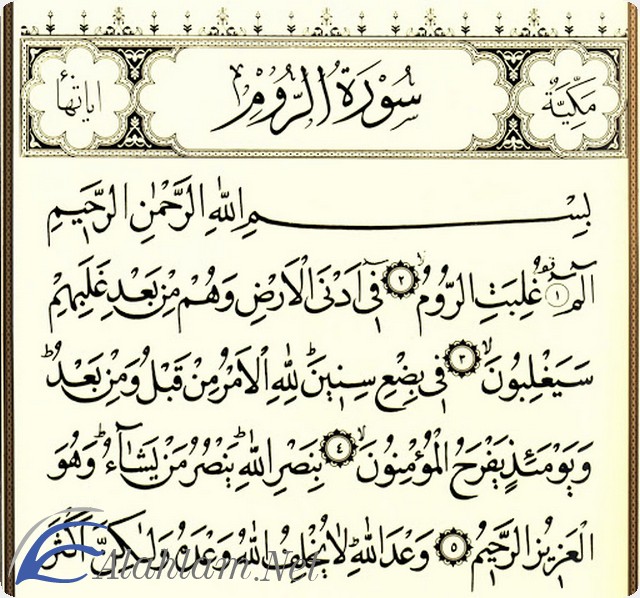 مَكِّيَّةٌ
سُورَةُ الرُّومِ
اٰيَاتُهَا ٦٠
بِسْمِ اللّٰهِ الرَّحْمٰنِ الرَّحِيمِ
الٓمٓ ﴿١﴾ غُلِبَتِ الرُّومُ ﴿٢﴾ فِٓى اَدْنَى الْاَرْضِ وَهُمْ مِنْ بَعْدِ غَلَبِهِمْ
سَيَغْلِبُونَ ﴿٣﴾ فِى بِضْعِ سِنِينَ لِلّٰهِ الْاَمْرُ مِنْ قَبْلُ وَمِنْ بَعْدُ
وَيَوْمَئِذٍ يَفْرَحُ الْمُؤْمِنُونَ ﴿٤﴾ بِنَصْرِ اللّٰهِ يَنْصُرُ مَنْ يَشَٓاءُ وَهُوَ
الْعَزِيزُ الرَّحِيمُ ﴿٥﴾ وَعْدَ اللّٰهِ لَا يُخْلِفُ اللّٰهُ وَعْدَهُ وَلٰكِنَّ اَكْثَرَ
Alahlam.Net